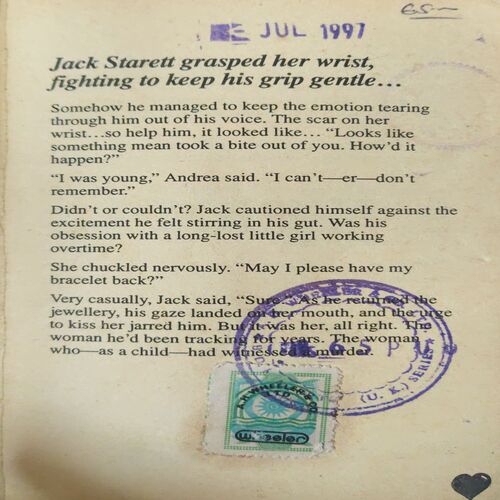 JUL 1997
Jack Starett grasped her wrist,
fighting to keep his grip gentle...
Somehow he managed to keep the emotion tearing
through him out of his voice. The scar on her
wrist...so help him, it looked like... “Looks like
something mean took a bite out of you. How’d it
happen?”
“I was young,” Andrea said. “I can’t—er—don’t
remember.”
Didn’t or couldn’t? Jack cautioned himself against the
excitement he felt stirring in his gut. Was his
obsession with a long-lost little girl working
overtime?
She chuckled nervously. “May I please have my
bracelet back?”
Very casually, Jack said, “Sure.” As he returned the
jewellery, his gaze landed on her mouth, and the urge
to kiss her jarred him. But it was her, all right. The
woman he’d been tracking for years. The woman
who—as a child—had witnessed a murder.
(U. K.) SERIES
A.H. WHEELER & CO
LTD